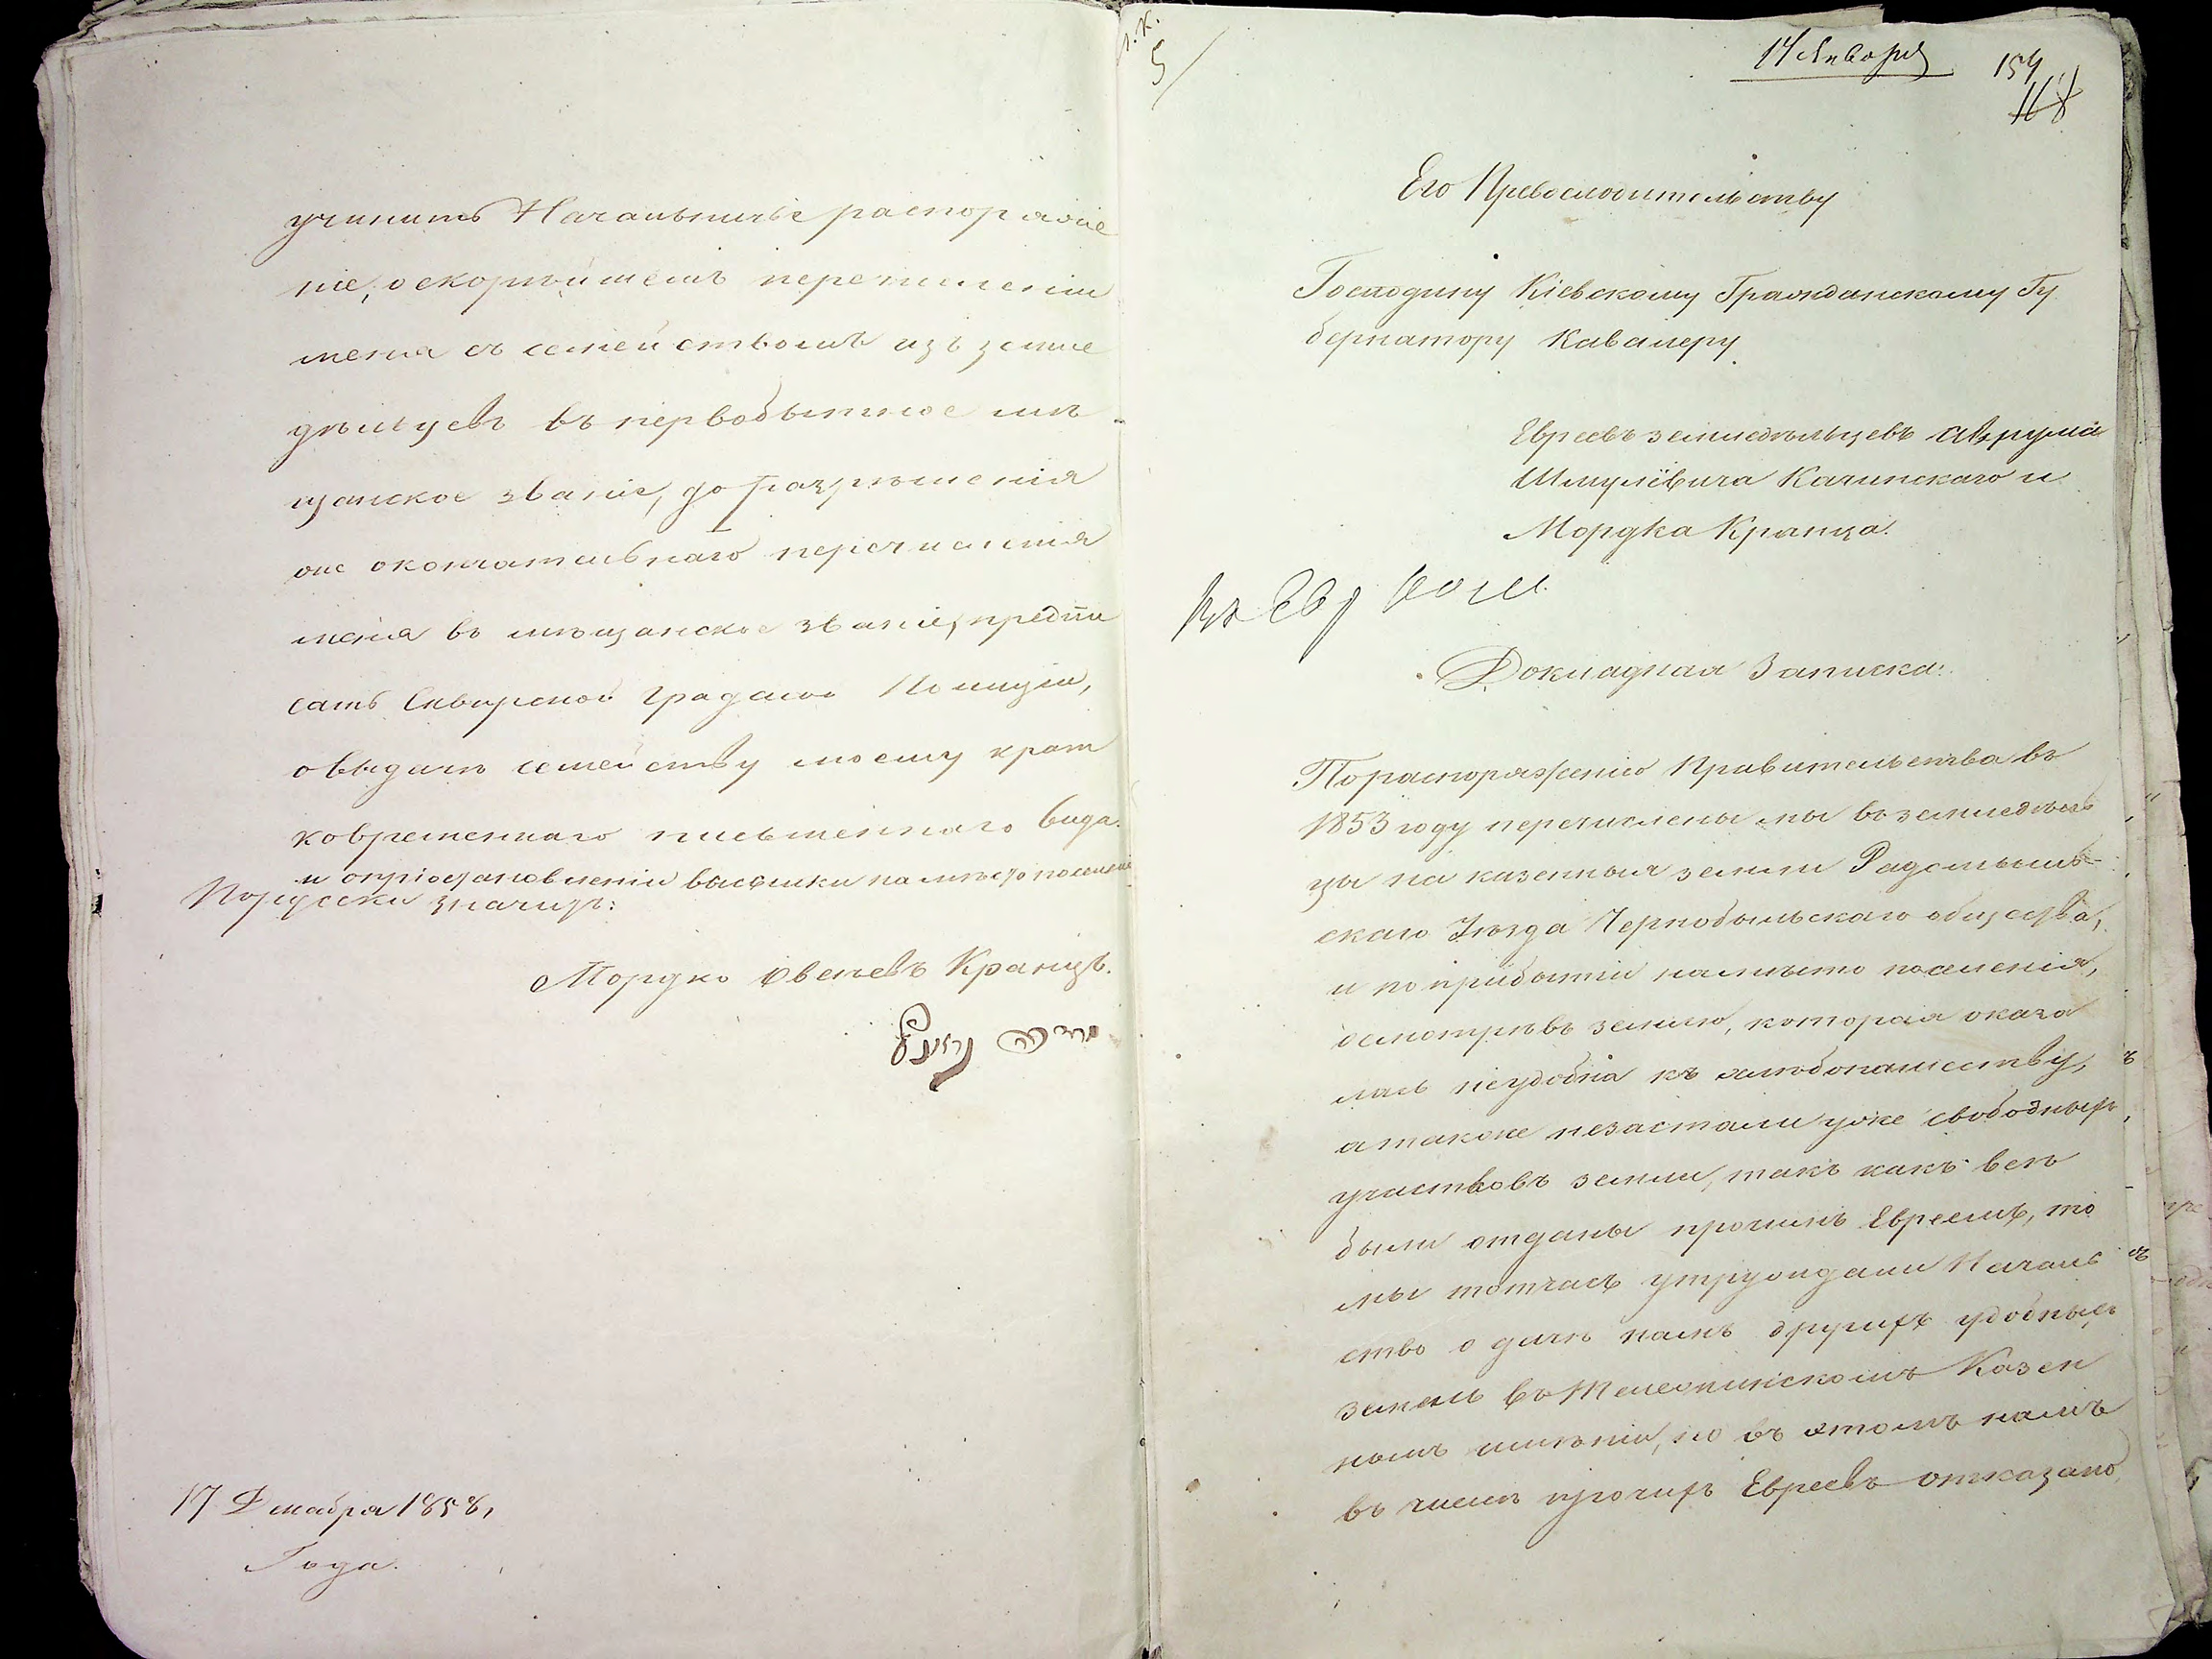 учинить Начальничье распоряже
ніе, о скорѣйшемъ перечисленіи
меня съ семействомъ изъ земле
дѣльцевъ въ первобытное мѣ
щанское званіе, до разрѣшенія
же окончательнаго перечисленія
меня въ мѣщанское званіе, предпи
сать Сквирской Градской Полиціи,
о выдачѣ семейству моему крат
ковременнаго письменнаго вида.
и опріостановленіи высылки на мѣсто поселенія
Порусски значитъ:
Мордко Овсеевъ Кранцъ.
17 Декабря 1858,
Года.
5
14 Января
154
118
Его Превосходительству
Господину Кіевскому Гражданскому Гу
бернатору Кавалеру.
Евреевъ земледѣльцевъ Аврума
Шмулевича Качинскаго и
Мордка Кранца.
Докладная Записка:
По распоряженію Правительства въ
1853 году перечислены мы въ земледѣль
цы на казенныя земли Радомысль
скаго Уѣзда Чернобыльскаго общества,
и по прибытіи на мѣсто поселенія,
осмотрѣвъ землю, которая оказа
лась неудобна къ хлѣбопашеству,
а также незастали уже свободныхъ
участковъ земли, такъ какъ всѣ
были отданы прочимъ Евреямъ, то
мы тотчасъ утруждали Началь
ство о дачѣ намъ другихъ удобныхъ
земель въ Казен
номъ имѣніи, но въ этомъ намъ
въ числѣ прочихъ Евреевъ отказано